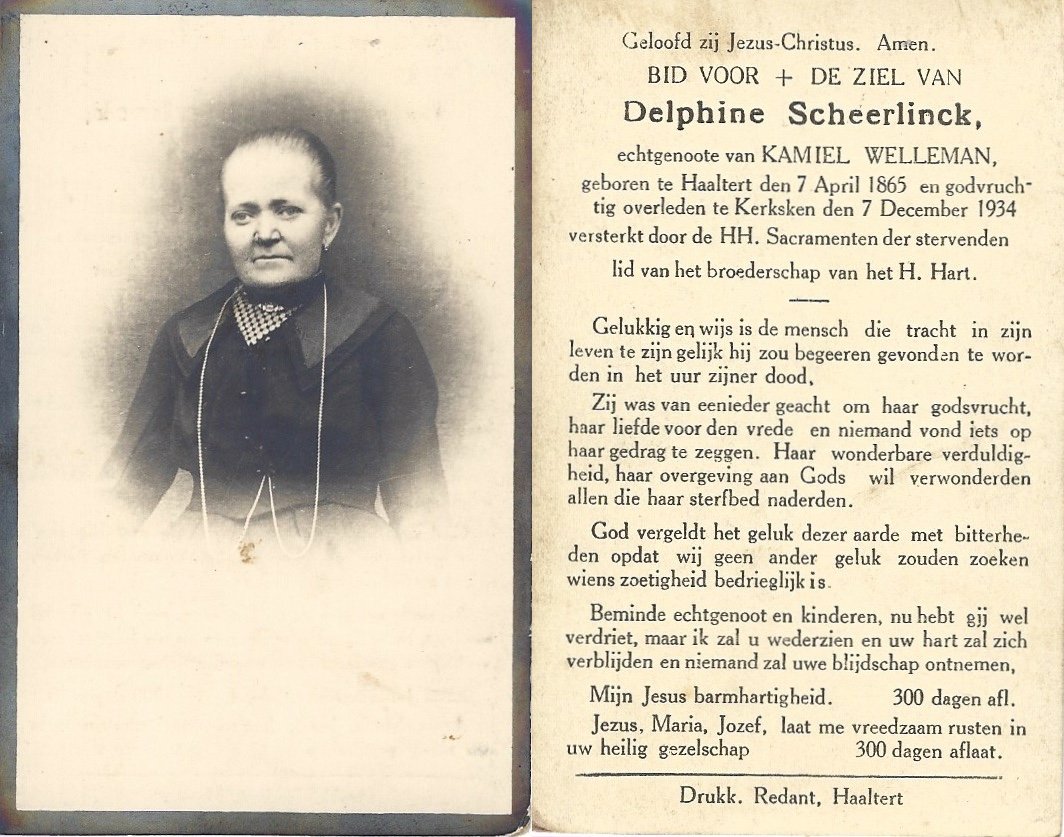 Geloofd zij Jezus-Christus. Amen.
BID VOOR + DE ZIEL VAN
Delphine Scheerlinck,
echtgenoote van KAMIEL WELLEMAN,
geboren te Haaltert den 7 April 1865 en godvruch-
tig overleden te Kerksken den 7 December 1934
versterkt door de HH. Sacramenten der stervenden
lid van het broederschap van het H. Hart.
Gelukkig en wijs is de mensch die tracht in zijn
leven te zijn gelijk hij zou begeeren gevonden te wor-
den in het uur zijner dood,
Zij was van eenieder geacht om haar godsvrucht,
haar liefde voor den vrede en niemand vond iets op
haar gedrag te zeggen. Haar wonderbare verduldig-
heid, haar overgeving aan Gods wil verwonderden
allen die haar sterfbed naderden.
God vergeldt het geluk dezer aarde met bitterhe-
den opdat wij geen ander geluk zouden zoeken
wiens zoetigheid bedrieglijk is.
Beminde echtgenoot en kinderen, nu hebt gij wel
verdriet, maar ik zal u wederzien en uw hart zal zich
verblijden en niemand zal uwe blijdschap ontnemen,
Mijn Jesus barmhartigheid. 300 dagen afl.
Jezus, Maria, Jozef, laat me vreedzaam rusten in
uw heilig gezelschap 300 dagen aflaat.
Drukk. Redant, Haaltert